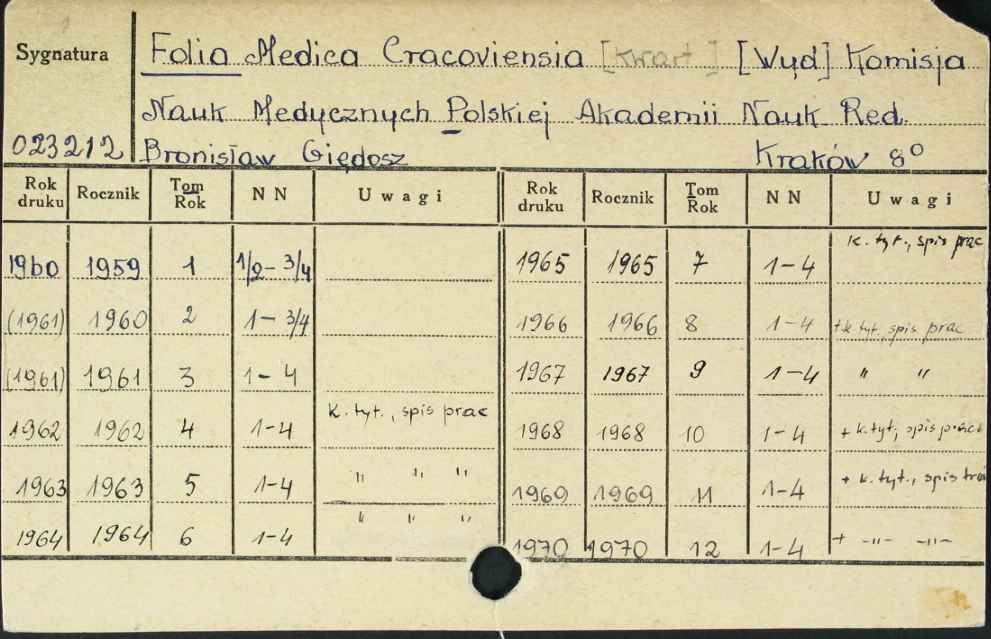 Sygnatura
Folia Medica Cracoviensia [Kwart] [Wyd] Komisja
Nauk Medycznych Polskiej Akademii Nauk Red.
023212 Bronisław Giędosz Kraków 8°
Rok druku Rocznik Tom Rok NN Uwagi Rok druku Rocznik Tom Rok NN Uwagi
1960 1959 1 1/2-3/4 1965 1965 7 1-4 k. tyt., spis prac
(1961) 1960 2 1-3/4 1966 1966 8 1-4 +k. tyt., spis prac
(1961) 1961 3 1-4 1967 1967 9 1-4 " "
1962 1962 4 1-4 k. tyt., spis prac 1968 1968 10 1-4 + k. tyt., spis prac
1963 1963 5 1-4 " " " 1969 1969 11 1-4 + k. tyt., spis
1964 1964 6 1-4 " " " 1970 1970 12 1-4 + -"- -"-